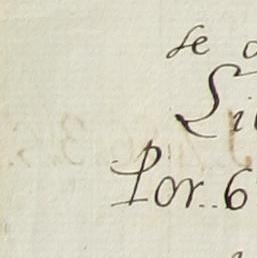 se
Li
Por. 6